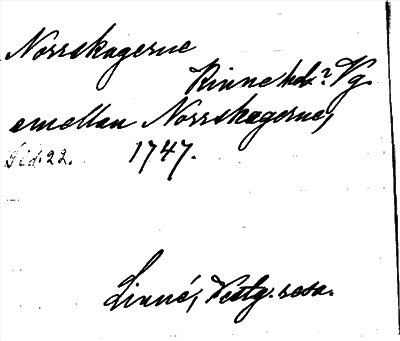 Norrskogerne
Kinne hd.? Vg
emellan Norrskogerne,
Sid. 22. 1747.
Linné, Vestg. resa.